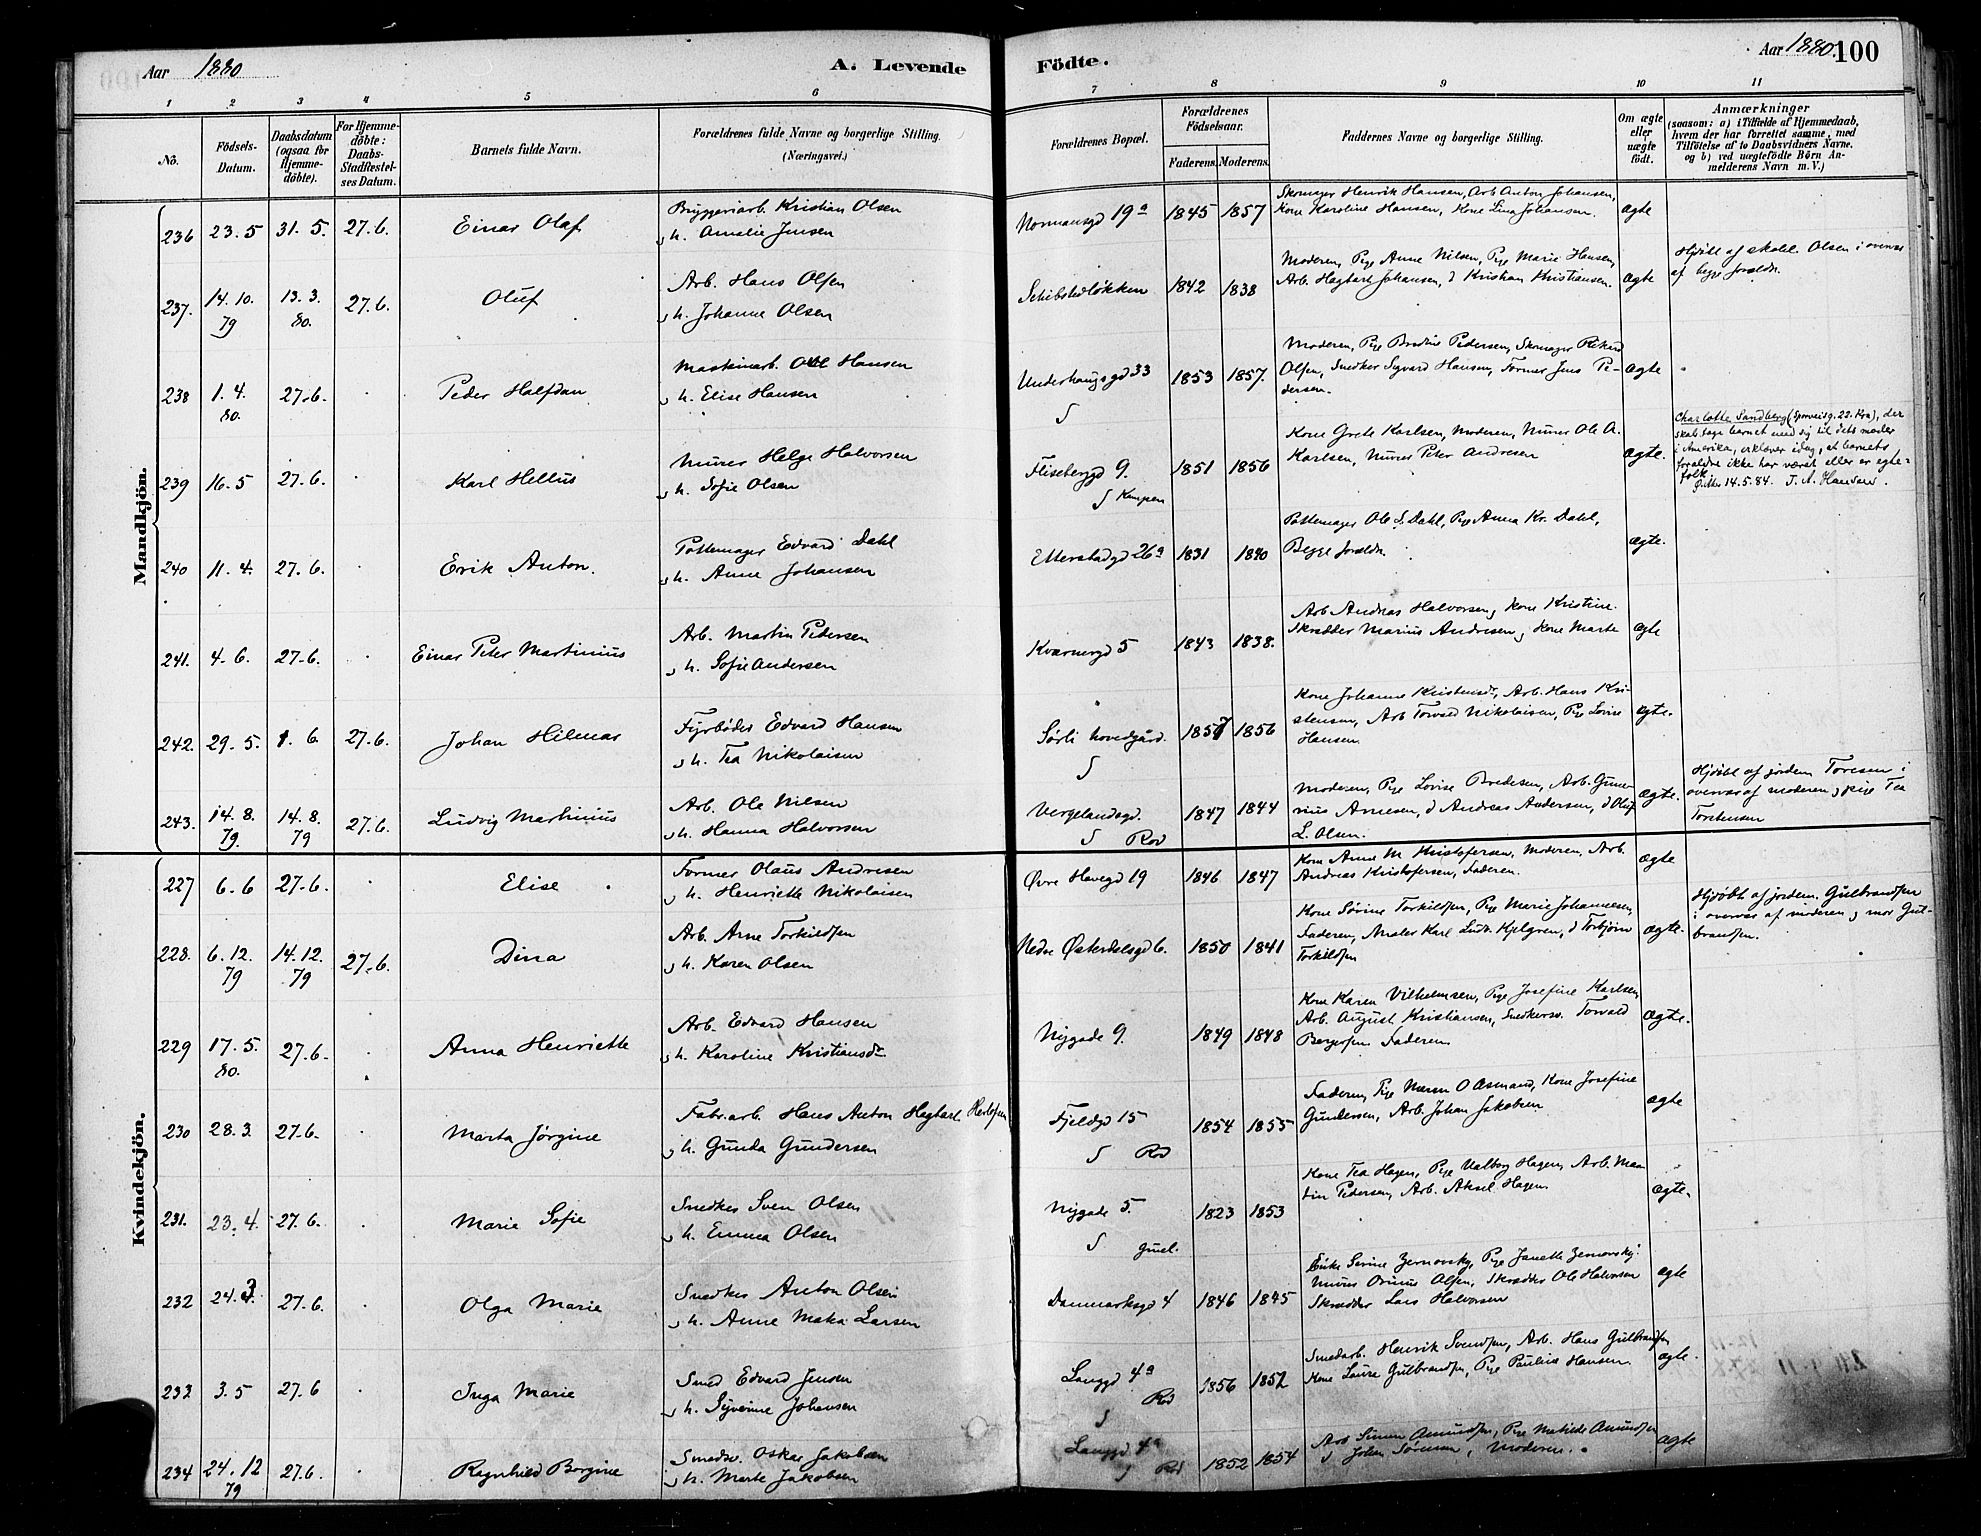 Aar 1880
A. Levende
Födte.
Aar 1880.
100
1
2
3
4
5
6
7
8
9
10
11
No.
Födsels-
Datum.
Daabsdatum
(ogsaa for
Hjemme-
döbte).
For Hjemme-
döbte:
Daabs-
Stadfæstel-
ses Datum.
Barnets fulde Navn.
Forældrenes fulde Navne og borgerlige Stilling.
(Næringsvei.)
Forældrenes Bopæl.
Forældrenes
Födselsaar.
Faderens.
Moderens.
Faddernes Navne og borgerlige Stilling.
Om ægte
eller
uægte
födt.
Anmærkninger
(saasom: a) i Tilfælde af Hjemmedaab,
hvem der har forrettet samme, med
Tilföielse af to Daabsvidners Navne,
og b) ved uægtefödte Börn An-
melderens Navn m. V.)
Mandkjön.
236 23.5 31.5. 27.6. Einar Olaf
Bryggeriarb. Kristian Olsen
h. Amalie Jensen
Normansgd 19a 1845 1857
Skomager Henrik Hansen, Arb Anton Johansen,
Kone Karoline Hansen, Kone Lina Johansen.
ægte
237. 14.10. 79 13.3. 80. 27.6. Oluf
Arb. Hans Olsen
h. Johanne Olsen
Schibstedløkken 1842 1838
Moderen, Pige Anne Nilsen, Pige Marie Hansen,
Arb. Hagbart Johansen, d Kristian Kristiansen.
ægte
Hjdöbt af skolel. Olsen i overvær
af begge foreldr.
238 1.4. 80. 27.6. Peder Halfdan
Maskinarb. Hansen
h. Elise Hansen
Underhaugsgd 33 1853 1857.
Moderen, Pige Pedersen, Skomager Rikard
Olsen, Snedker Sigvard Hansen, Former Jens Pe-
dersen.
ægte
239 16.5 27.6. Karl Hellus
Murer Helge Halvorsen
h. Sofie Olsen
Flisebergd 9. 1851 1856
Kampen
Kone Grete Karlsen, Moderen, Murer Ole A.
Karlsen, Murer Peter Andresen
ægte.
Charlotte Sandberg (Sporveisg. 22. Kra), der
skal tage barnet med sig til dets moder
i Amerika, erklærer idag, at barnets
foreldre ikke har været eller er egte-
folk
14.5.84. T. A. Hansen.
240 11.4. 27.6. Erik Anton.
Pottemager Edvard Dahl
h. Anne Johansen
Etterstadgd 26a 1831 1840
Pottemager Ole L. Dahl, Pige Anna Kr. Dahl,
Begge foreldr.
ægte.
241. 4.6. 27.6. Einar Peter Martinius
Arb. Martin Pedersen
h. Sofie Andersen
Kværnergd 5 1843 1838.
Arb Andreas Halvorsen, Kone Kristine.
Skrædder Marius Andresen, Kone Marte
ægte
242. 29.5. 1.6. 27.6. Johan Hilmar
Fyrbøder Edvard Hansen
h. Tea Nikolaisen
Sørli hovedgård. 1857 1856
Kone Johanne Kristensdr, Arb. Hans Kri-
stensen, Arb Torvald Nikolaisen, Pige Lovise
Hansen.
ægte.
243. 14.8. 79. 14.8. 79 27.6. Ludvig Martinius
Arb. Ole Nilsen
h. Hanna Halvorsen
Vergelandsgd. 1847 1844
Moderen, Pige Lovise Bredesen, Arb. Gune-
rius Arnesen, d Andreas Andersen, d Oluf
L. Olsen.
ægte.
Hjdöbt af jordem Toresen i
overvær af moderen, pige Tea
Torstensen
Kvindekjön.
227 6.6 27.6. Elise
Former Olaus Andresen
h. Henriette Nikolaisen
Øvre Havegd 19 1846 1847
Kone Anne M Kristofersen, Moderen, Arb.
Andreas Kristofersen, Faderen.
ægte
228. 6.12. 79 14.12. 79 27.6. Dina
Arb. Arne Torkildsen
h. Karen Olsen
Nedre Østerdalsgd 6. 1850 1841
Kone Sørine Torkildsen, Pige Marie Johannesen,
Faderen, Maler Karl Ludv. Kjelgren, d Torbjørn
Torkildsen
ægte.
Hjdöbt af jordem. Gulbrandsen
i overvær af moderen, mor Gul-
brandsen.
229 17.5. 80. 27.6. Anna Henriette
Arb. Edvard Hansen
h. Karoline Kristiansdr
Nygade 9. 1849 1848
Kone Karen Vilhelmsen, Pige Josefine Karlsen
Arb. August Kristiansen, Snedkersv. Torvald
Bergersen Faderen
ægte.
230 28.3. 27.6. Marta Jørgine
Fabr.arb. Hans Anton Hegbart Herlofsen
h. Gunda Gundersen
Fjeldgd 15 1854 1855
Faderen, Pige Maren O Aasmund, Kone Josefine
Gundersen, Arb. Johan Jakobsen
ægte
231. 23.4. 27.6. Marie Sofie
Snedker Sven Olsen
h. Emma Olsen
Nygade 5. 1823 1853
Kone Tea Hagen, Pige Valborg Hagen, Arb. Mar-
tin Pedersen, Arb. Aksel Hagen.
ægte.
232 24.3. 27.6. Olga Marie
Snedker Anton Olsen
h. Anne Maka Larsen
Danmarksgd 4 1846 1845
Enke Serine Zernovsky, Pige Janette Zernovsky.
Murer Olsen, Skrædder Ole Halvorsen
Skrædder Lars Halvorsen
ægte
233 3.5 27.6 Inga Marie
Smed Edvard Jensen
h. Syverine Johansen
Langgd 4a 1856 1852
Smedarb. Henrik Svendsen, Arb. Hans Gulbrandsen
Kone Laura Gulbrandsen, Pige Pauline Hansen.
ægte.
234 24.12 79 27.6. Ragnhild Borgine
Smedsv. Oskar Jakobsen
h. Marte Jakobsen
Langgd 4a 1852 1854
Arb Simen Amundsen, Pige Matilde Amundsen
d Johan Sørensen, Moderen.
ægte